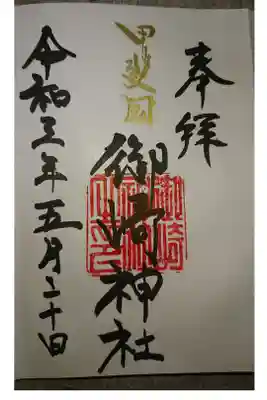 奉拝
甲斐国
御崎神社
令和三年五月二十日